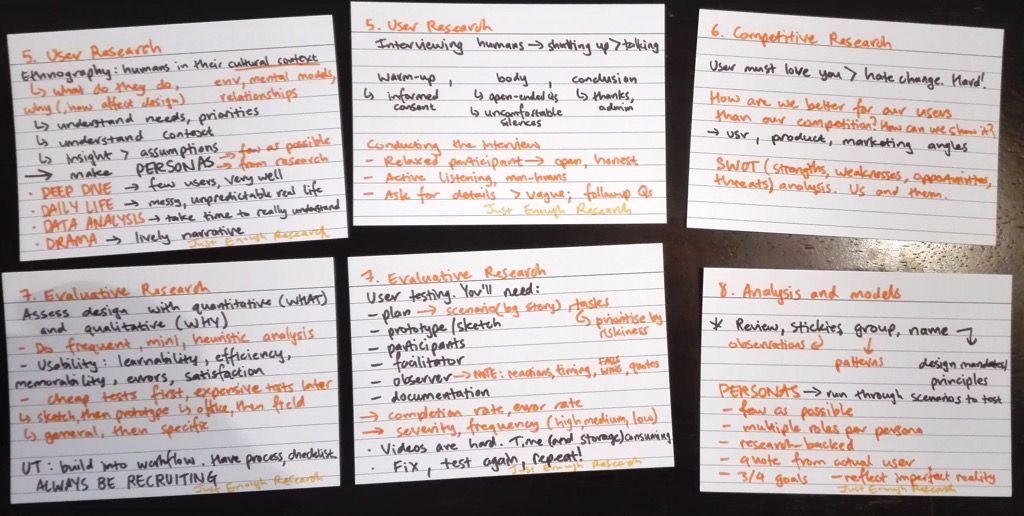 5. User Research
Ethnography: humans in their cultural context
↳ what do they do, env, mental models,
why (, how affect design) relationships
↳ understand needs, priorities
↳ understand context
↳ insight > assumptions
→ make PERSONAS → few as possible
→ from research
· DEEP DIVE → few users, very well
· DAILY LIFE → messy, unpredictable real life
· DATA ANALYSIS → take time to really understand
· DRAMA → lively narrative
Just Enough Research
5. User Research
Interviewing humans → shutting up > talking
warm-up, body, conclusion
↳ informed consent
↳ open-ended Qs
↳ uncomfortable silences
↳ thanks, admin
Conducting the interview
- Relaxed participant → open, honest
- Active listening, mm-hmms
- Ask for details > vague; followup Qs
Just Enough Research
6. Competitive Research
User must love you > hate change. Hard!
How are we better for our users
than our competition? How can we show it?
→ usr, product, marketing angles
SWOT (strengths, weaknesses, opportunities,
threats) analysis. Us and them.
7. Evaluative Research
Assess design with quantitative (WHAT)
and qualitative (WHY)
- Do frequent, mini, heuristic analysis
- Usability: learnability, efficiency,
memorability, errors, satisfaction
- cheap tests first, expensive tests later
↳ sketch, then prototype ↳ office, then field
↳ general, then specific
UT: build into workflow. Have process, checklist.
ALWAYS BE RECRUITING
Just Enough Research
7. Evaluative Research
User testing. You'll need:
- plan → scenario (bg story), tasks
↳ prioritise by riskiness
- prototype/sketch
- participants
- facilitator
- observer → NOTE: reactions, timing, FAILS WINS, quotes
- documentation
→ completion rate, error rate
→ severity, frequency (high medium, low)
· Videos are hard. Time (and storage) consuming
· Fix, test again, repeat!
Just Enough Research
8. Analysis and models
* Review, stickies group, name
observations patterns design mandates/
principles
PERSONAS → run through scenarios to test
- few as possible
- multiple roles per persona
- research-backed
- quote from actual user
- 3/4 goals - reflect imperfect reality
Just Enough Research